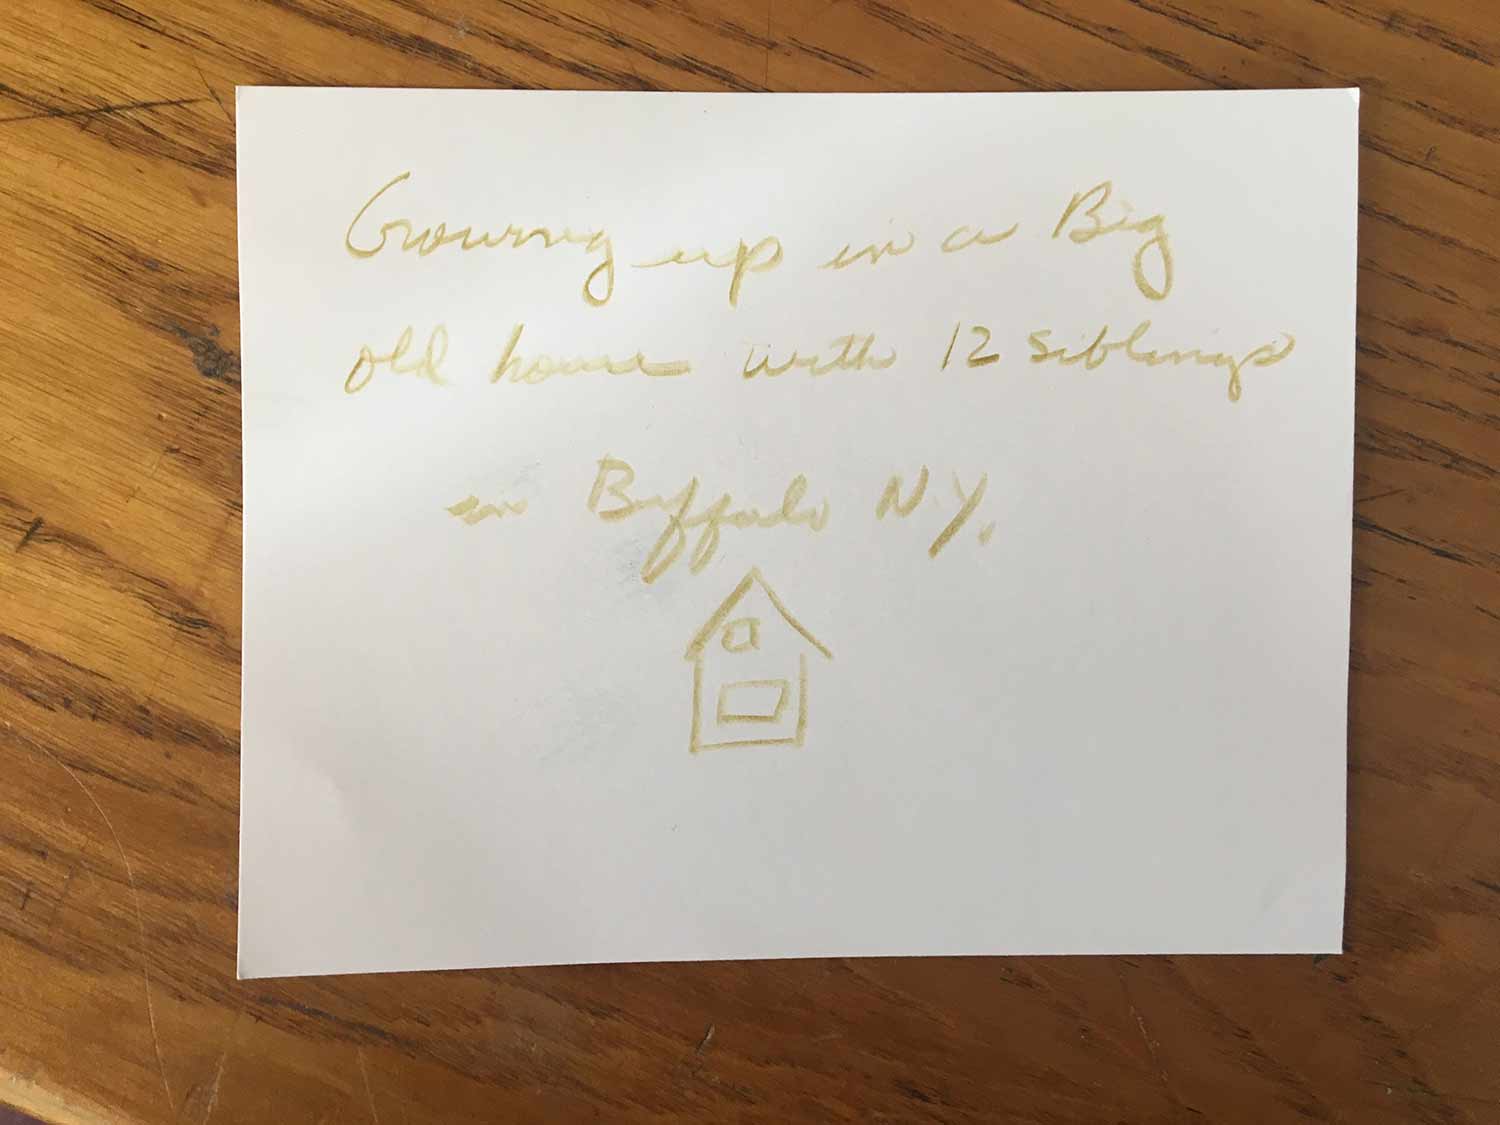 Growing up in a Big
old house with 12 siblings
in Buffalo N.Y.